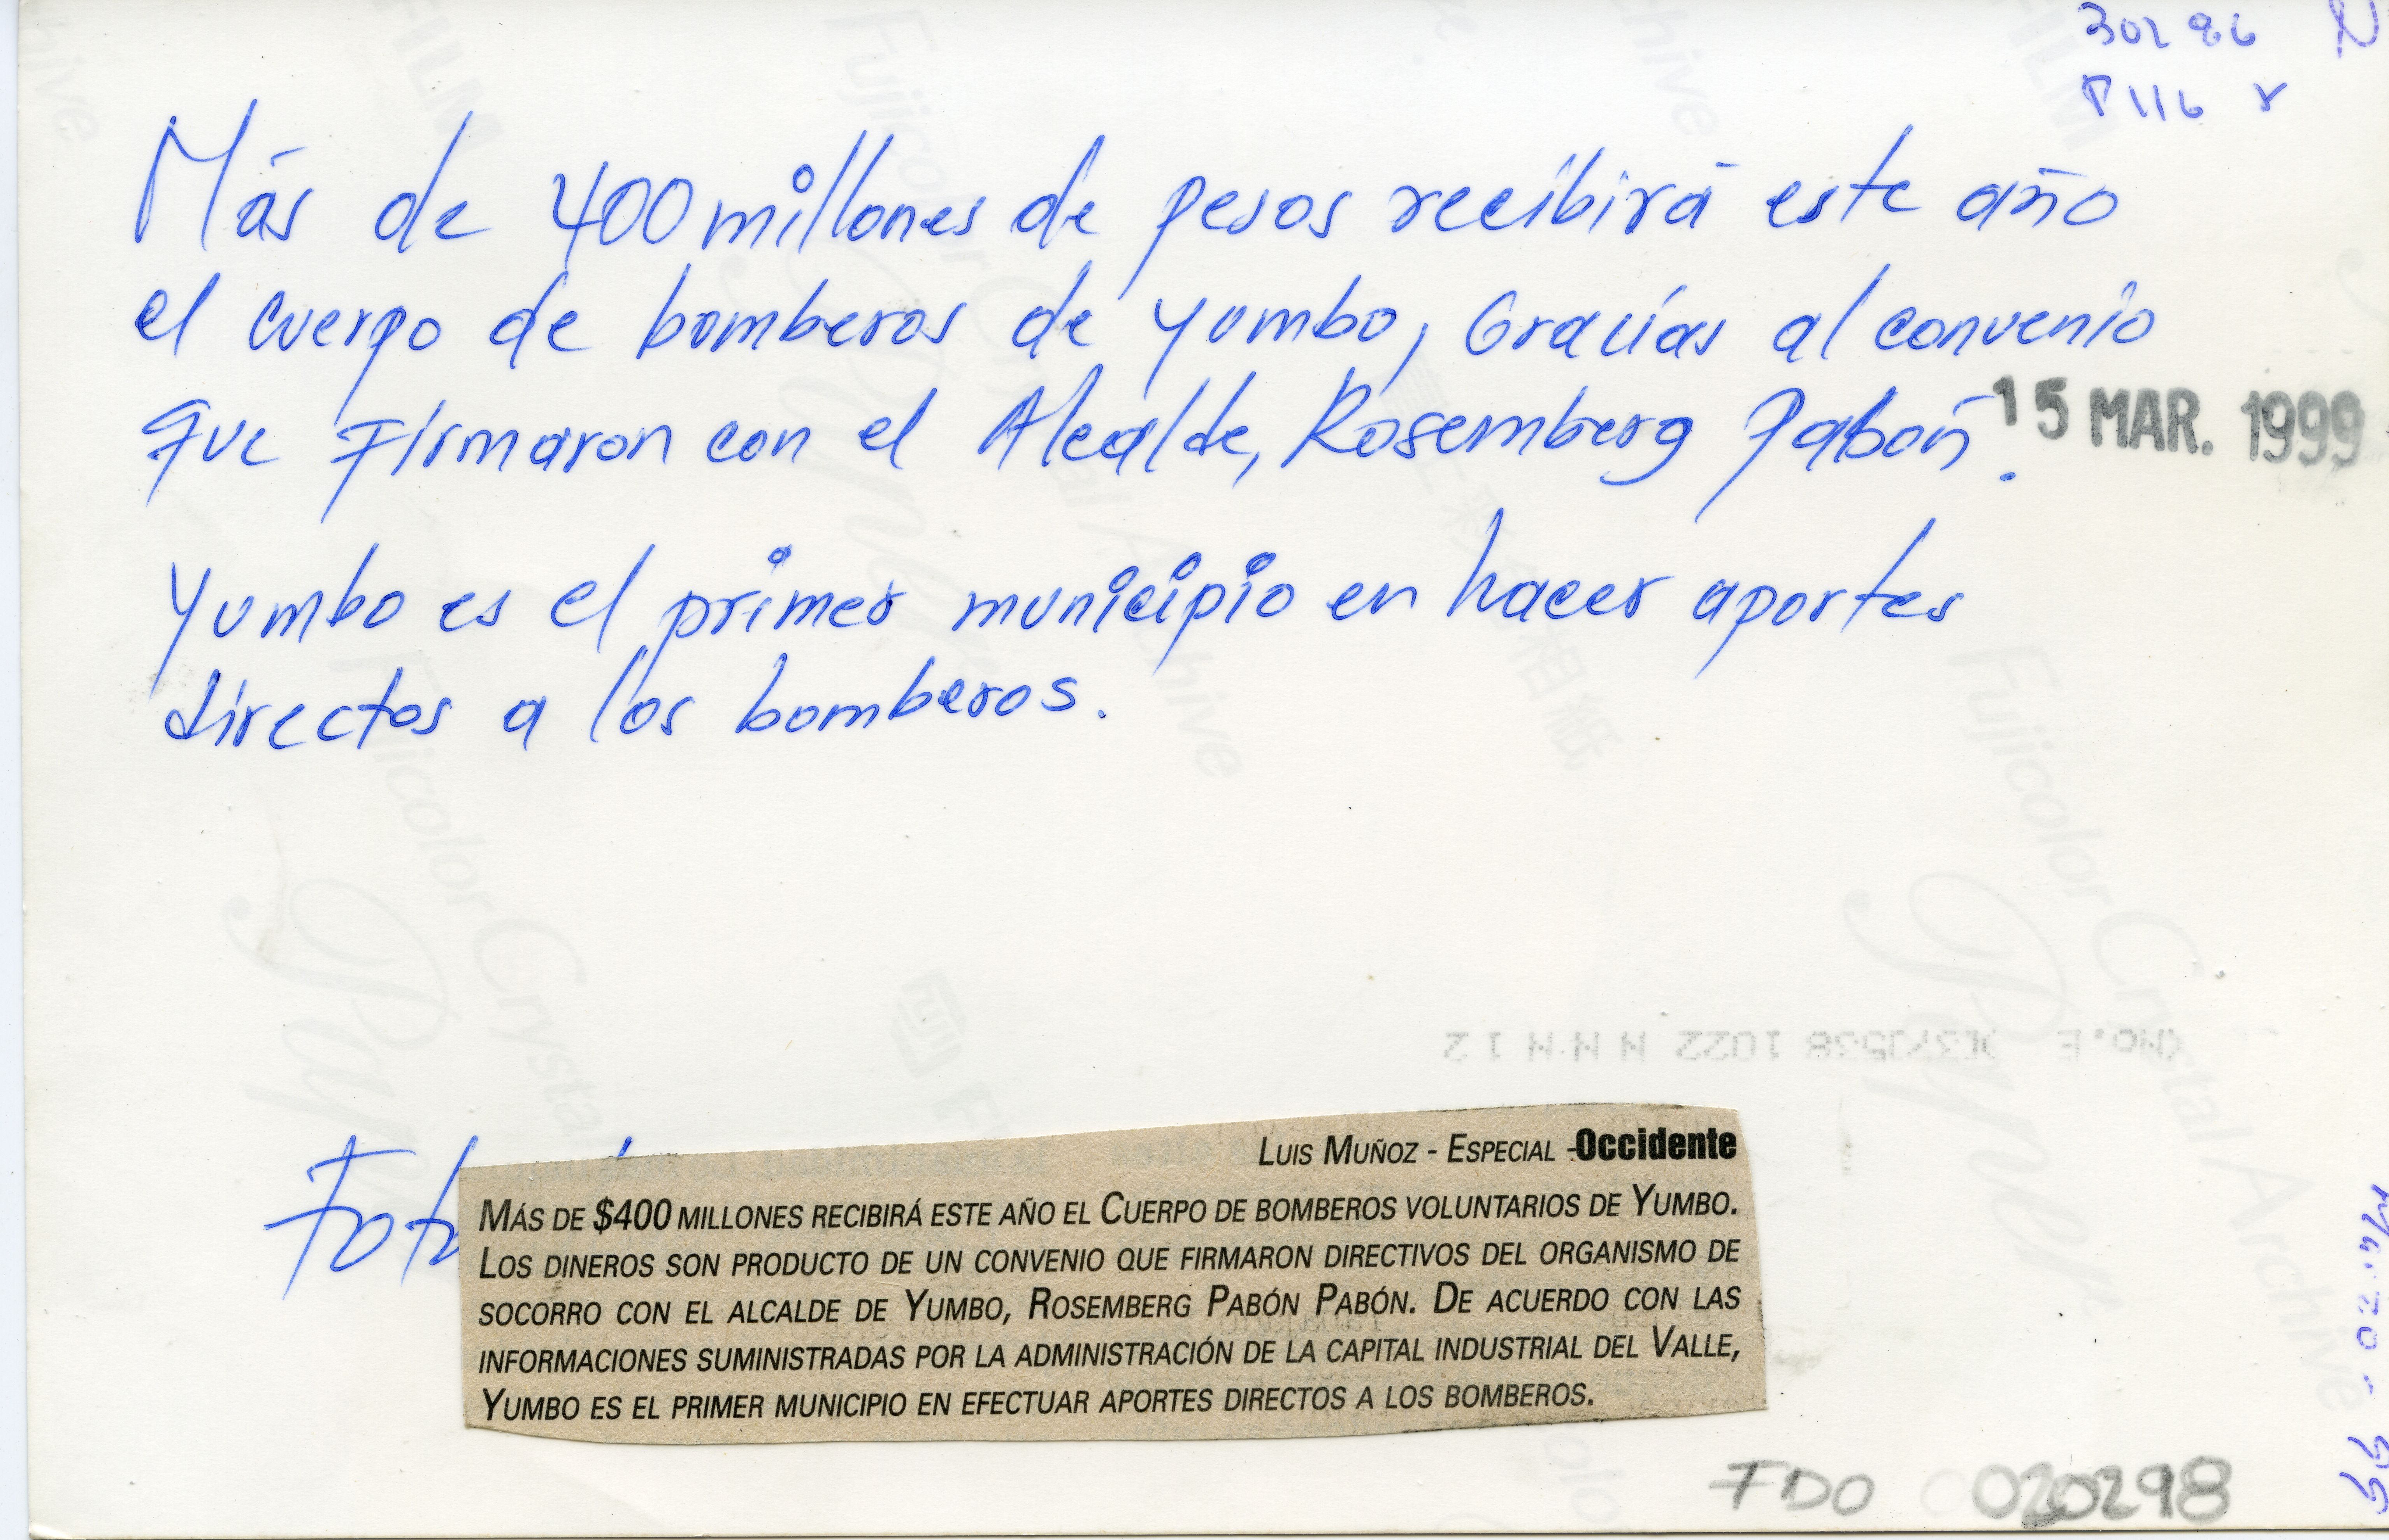 30286 N
P116 r
Más de 400 millones de pesos recibirá este año
el cuerpo de bomberos de yumbo, Gracias al convenio
que Firmaron con el Alcalde, Rosemberg Pabón.
15 MAR. 1999
Yumbo es el primer municipio en hacer aportes
directos a los bomberos.
Fujicolor Crystal Archive
Foto
LUIS MUÑOZ - ESPECIAL -Occidente
MÁS DE $400 MILLONES RECIBIRÁ ESTE AÑO EL CUERPO DE BOMBEROS VOLUNTARIOS DE YUMBO.
LOS DINEROS SON PRODUCTO DE UN CONVENIO QUE FIRMARON DIRECTIVOS DEL ORGANISMO DE
SOCORRO CON EL ALCALDE DE YUMBO, ROSEMBERG PABÓN PABÓN. DE ACUERDO CON LAS
INFORMACIONES SUMINISTRADAS POR LA ADMINISTRACIÓN DE LA CAPITAL INDUSTRIAL DEL VALLE,
YUMBO ES EL PRIMER MUNICIPIO EN EFECTUAR APORTES DIRECTOS A LOS BOMBEROS.
FDO 020298